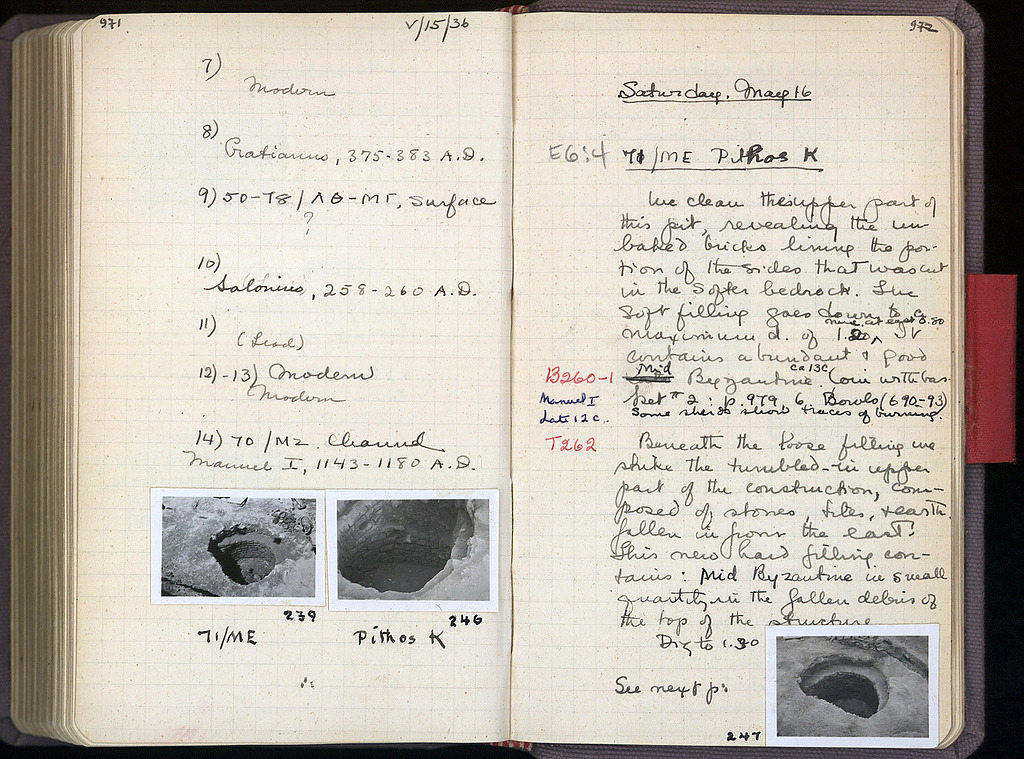 971
V/15/36
7)
Modern
8)
Gratianus, 375-383 A.D.
9) 50-78/ΛΘ-ΜΓ, Surface
?
10)
Saloninus, 258-260 A.D.
11)
(Lead)
12)-13) Modern
Modern
14) 70/MZ Channel
Manuel I, 1143-1180 A.D.
239
246
71/ME
Pithos K
972
Saturday. May 16
E6:4 71/ME Pithos K
We clean the upper part of
this pit, revealing the un
baked bricks lining the por-
tion of the sides that was cut
in the softer bedrock. The
soft filling goes down to a
maximum d. of 1.20
contains abundant & good
Mid Byzantine ca 13C. Coin with bas-
B260-1
Manuel I
Late 12 c.
ket #2: p. 979, 6 Bowls (690-93)
Some sherds show traces of burning.
T262
Beneath the loose filling we
strike the tumbled-in upper
part of the construction, com-
posed of stones, tiles, + earth
fallen in from the east.
This new hard filling con-
tains: Mid Byzantine in small
quantity in the fallen debris of
the top of the structure
Dig to 1.30
See next p:
247